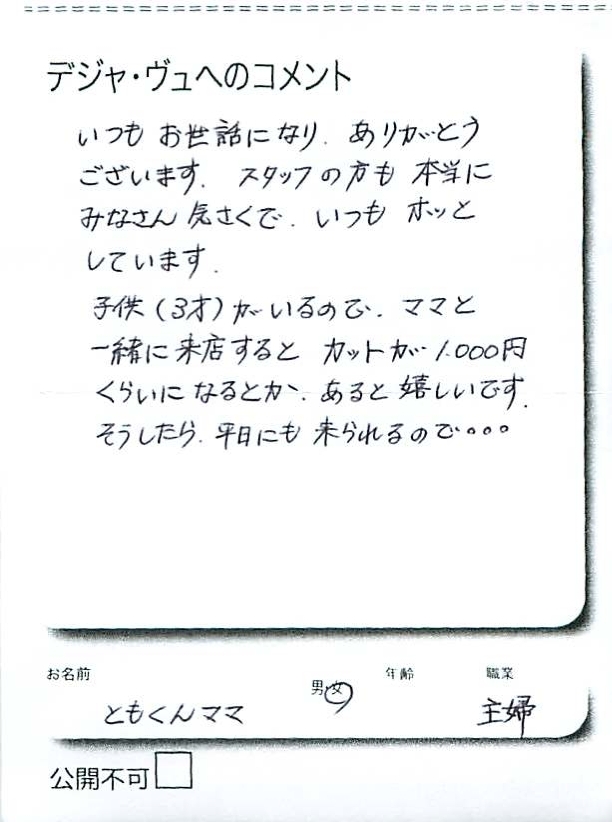 デジャ・ヴュへのコメント
いつも お世話になり、ありがとう
ございます。スタッフの方も 本当に
みなさん 気さくで、いつも ホッと
しています。
子供（3才）がいるので、ママと
一緒に来店すると カットが 1.000円
くらいになるとか、あると嬉しいです。
そうしたら、平日にも 来られるので。。。
お名前 男・女 年齢 職業
ともくんママ 主婦
公開不可